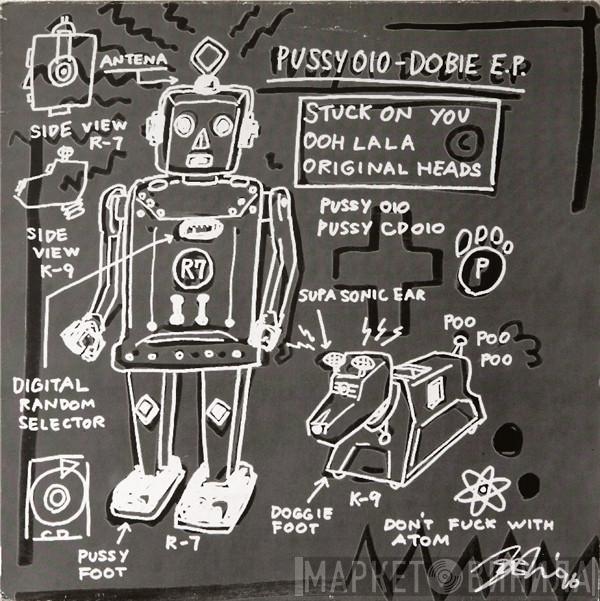 PUSSY 010-DOBIE E.P.
ANTENA
STUCK ON YOU
OOH LALA
ORIGINAL HEADS
C
SIDE VIEW
R-7
PUSSY 010
PUSSY CD010
SIDE
VIEW
K-9
R7
P
SUPA SONIC EAR
POO
POO
POO
DIGITAL
RANDOM
SELECTOR
CD
K-9
DOGGIE
FOOT
DON'T FUCK WITH
ATOM
R-7
PUSSY
FOOT
96
МАРКЕТ ВИНИЛА